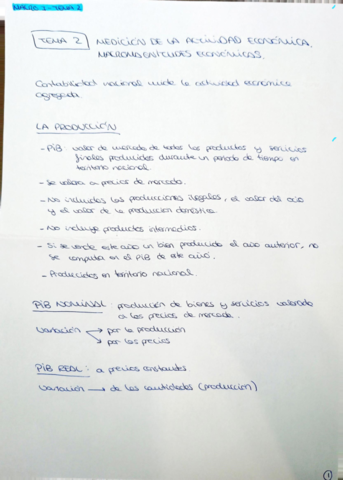 MACRO I - TEMA 2
TEMA 2 MEDICIÓN DE LA ACTIVIDAD ECONÓMICA.
MACROMAGNITUDES ECONÓMICAS.
Contabilidad nacional mide la actividad económica
agregada.
LA PRODUCCIÓN
- PIB: valor de mercado de todos los productos y servicios
finales producidos durante un periodo de tiempo en
territorio nacional.
- Se valora a precios de mercado.
- No incluidos las producciones ilegales, el valor del ocio
y el valor de la produccion doméstica.
- No incluye productos intermedios.
- Si se vende este año un bien producido el año anterior, no
se computa en el PIB de este año.
- Producidos en territorio nacional.
PIB NOMINAL: producción de bienes y servicios valorado
a los precios de mercado.
Variación → por la producción
→ por los precios
PIB REAL: a precios constantes
Variación → de las cantidades (producción)
1